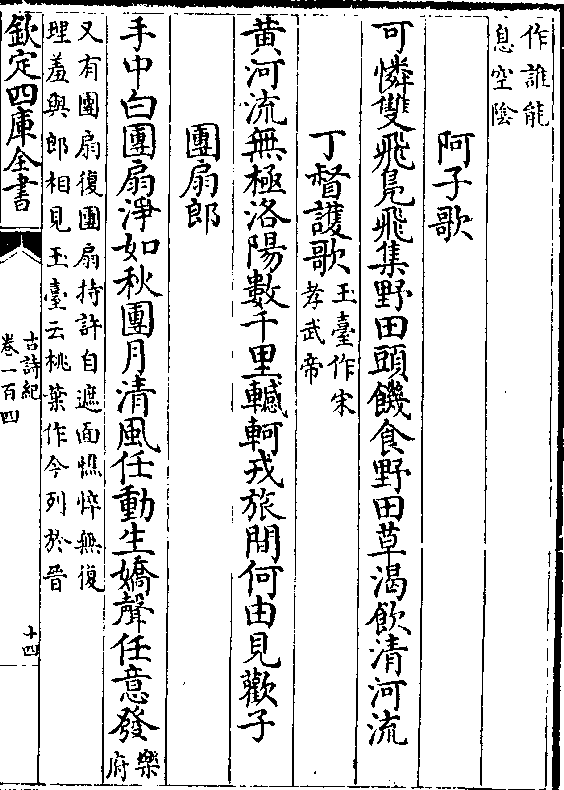 作誰能
息空陰
阿子歌
可憐雙飛鳧飛集野田頭饑食野田草渴飲清河流
丁督護歌
玉臺作宋
孝武帝
黄河流無極洛陽數千里轗軻戎旅間何由見歡子
團扇郎
手中白團扇淨如秋團月清風任動生嬌聲任意發
樂
府
又有團扇復團扇持許自遮面憔悴無復
理羞與郎相見玉臺云桃葉作今列於晉
欽定四庫全書
古詩紀
卷一百四
十四